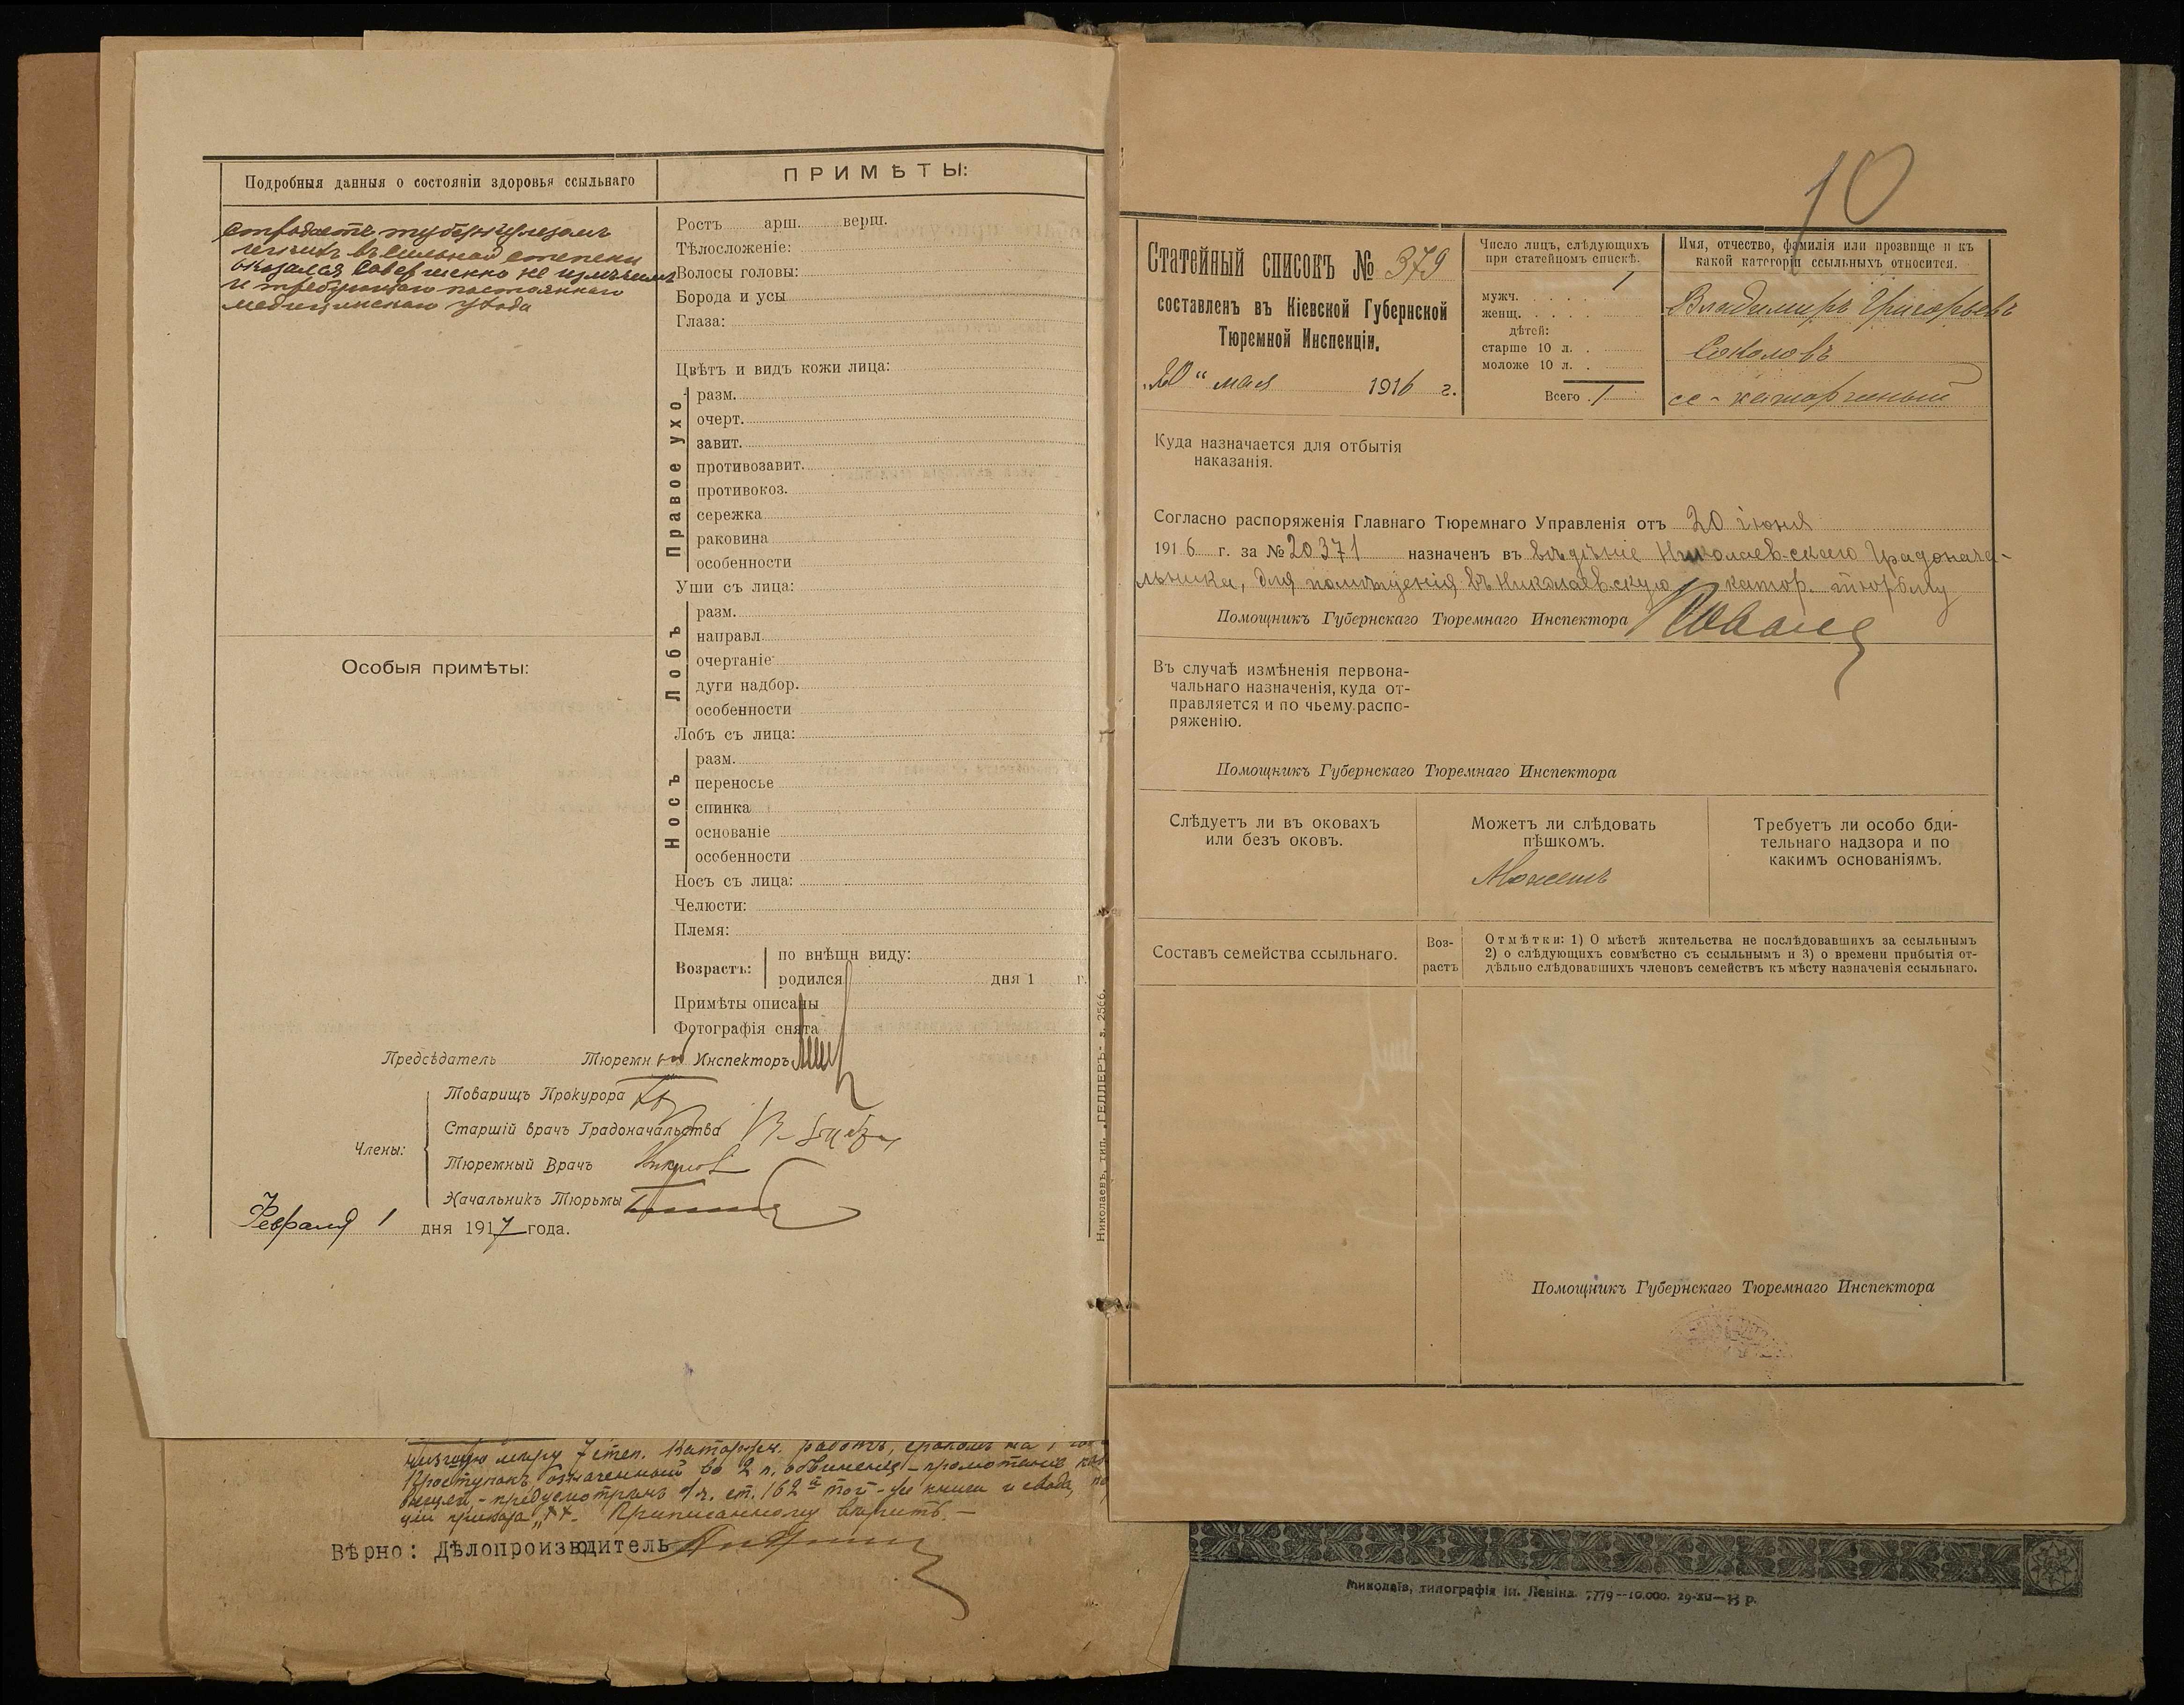 Подробныя данныя о состояніи здоровья ссыльнаго
Страдаетъ туберкулезомъ
легкихъ въ сильной степени
оказался совершенно не излечимъ
и требующаго постояннаго
медицинскаго ухода
Особыя примѣты:
ПРИМѢТЫ:
Ростъ арш. верш.
Тѣлосложеніе:
Волосы головы:
Борода и усы
Глаза:
Цвѣтъ и видъ кожи лица:
Правое ухо
разм.
очерт.
завит.
противозавит.
противокоз.
сережка
раковина
особенности
Уши съ лица:
Лобъ
разм.
направл.
очертаніе
дуги надбор.
особенности
Лобъ съ лица:
Носъ
разм.
переносье
спинка
основаніе
особенности
Носъ съ лица:
Челюсти:
Племя:
Возрастъ:
по внѣшн виду:
родился дня 1 г.
Примѣты описаны
Фотографія снята
Предсѣдатель Тюремн Инспекторъ
Члены:
Товарищъ Прокурора
Старшій врачъ Градоначальства
Тюремный Врачъ
Начальникъ Тюрьмы
Февраля 1 дня 1917 года.
Николаевъ, тип. „ГЕЛЛЕРЪ“ з. 2566.
низшую мѣру 7 степ. каторжн. работъ, срокомъ на
Проступокъ означенный во 2 п. обвиненія – промотаніе
вещей, – предусмотрѣнъ ч. ст. 162 той-же книги и свода,
приказа Приписанному вѣрить. –
Вѣрно: Дѣлопроизводитель
10
Статейный списокъ № 379
составленъ въ Кіевской Губернской
Тюремной Инспекціи.
„20“ мая 1916 г.
Число лицъ, слѣдующихъ
при статейномъ спискѣ.
1
мужч.
женщ.
дѣтей:
старше 10 л.
моложе 10 л.
Всего 1
Имя, отчество, фамилія или прозвище и къ
какой категоріи ссыльныхъ относится.
Владимиръ Григорьевъ
Соколовъ
сс-каторжный
Куда назначается для отбытія
наказанія.
Согласно распоряженія Главнаго Тюремнаго Управленія отъ 20 іюня
1916 г. за № 20371 назначенъ въ вѣдѣніе Николаевскаго Градонача-
льника, для помѣщенія въ Николаевскую катор. тюрьму
Помощникъ Губернскаго Тюремнаго Инспектора
Въ случаѣ измѣненія первона-
чальнаго назначенія, куда от-
правляется и по чьему распо-
ряженію.
Помощникъ Губернскаго Тюремнаго Инспектора
Слѣдуетъ ли въ оковахъ
или безъ оковъ.
Можетъ ли слѣдовать
пѣшкомъ.
Можетъ
Требуетъ ли особо бди-
тельнаго надзора и по
какимъ основаніямъ.
Составъ семейства ссыльнаго.
Воз-
растъ
Отмѣтки: 1) О мѣстѣ жительства не послѣдовавшихъ за ссыльнымъ
2) о слѣдующихъ совмѣстно съ ссыльнымъ и 3) о времени прибытія от-
дѣльно слѣдовавшихъ членовъ семействъ къ мѣсту назначенія ссыльнаго.
Помощникъ Губернскаго Тюремнаго Инспектора
Миколаїв, типографія ім. Леніна 7779–10.000.